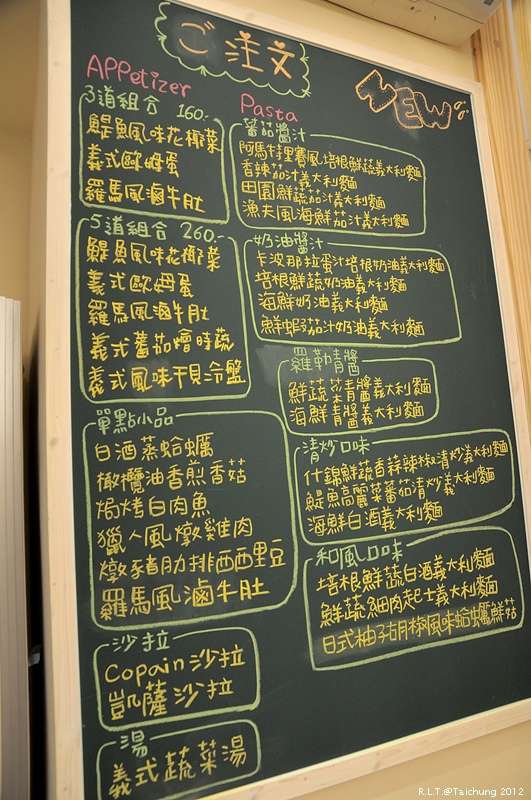 ご注文
NEW
APPetizer
3道組合 160-
鯷魚風味花椰菜
義式歐姆蛋
羅馬風滷牛肚
5道組合 260-
鯷魚風味花椰菜
義式歐姆蛋
羅馬風滷牛肚
義式蕃茄燴時蔬
義式風味干貝冷盤
單點小品
白酒蒸蛤蠣
橄欖油香煎香菇
焗烤白肉魚
獵人風燉雞肉
燉豬肋排西西里豆
羅馬風滷牛肚
沙拉
Copain沙拉
凱薩沙拉
湯
義式蔬菜湯
Pasta
蕃茄醬汁
阿馬特里賽風培根鮮蔬義大利麵
香辣茄汁義大利麵
田園鮮蔬茄汁義大利麵
漁夫風海鮮茄汁義大利麵
奶油醬汁
卡波那拉蛋汁培根奶油義大利麵
培根鮮蔬奶油義大利麵
海鮮奶油義大利麵
鮮蝦茄汁奶油義大利麵
羅勒青醬
鮮蔬菜青醬義大利麵
海鮮青醬義大利麵
清炒口味
什錦鮮蔬香蒜辣椒清炒義大利麵
鯷魚高麗菜蕃茄清炒義大利麵
海鮮白酒義大利麵
和風口味
培根鮮蔬白酒義大利麵
鮮蔬細肉起士義大利麵
日式柚子胡椒風味蛤蠣鮮菇
R.L.T.@Taichung 2012